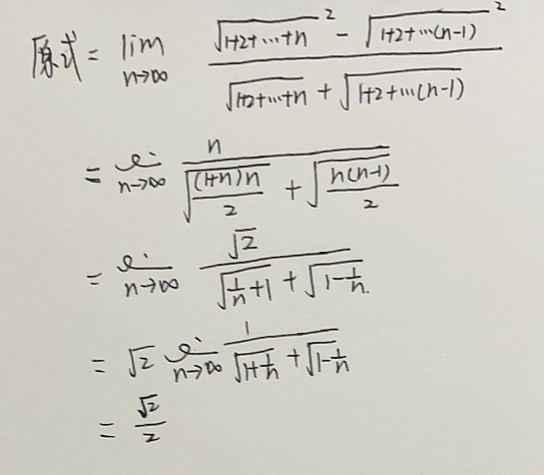 原式 = lim_{n→∞} (√(1+2+⋯+n)² - √(1+2+⋯(n-1))²) / (√(1+2+⋯+n) + √(1+2+⋯(n-1)))
= lim_{n→∞} n / (√((1+n)n/2) + √(n(n-1)/2))
= lim_{n→∞} √2 / (√(1/n+1) + √(1-1/n))
= √2 lim_{n→∞} 1 / (√(1+1/n) + √(1-1/n))
= √2/2